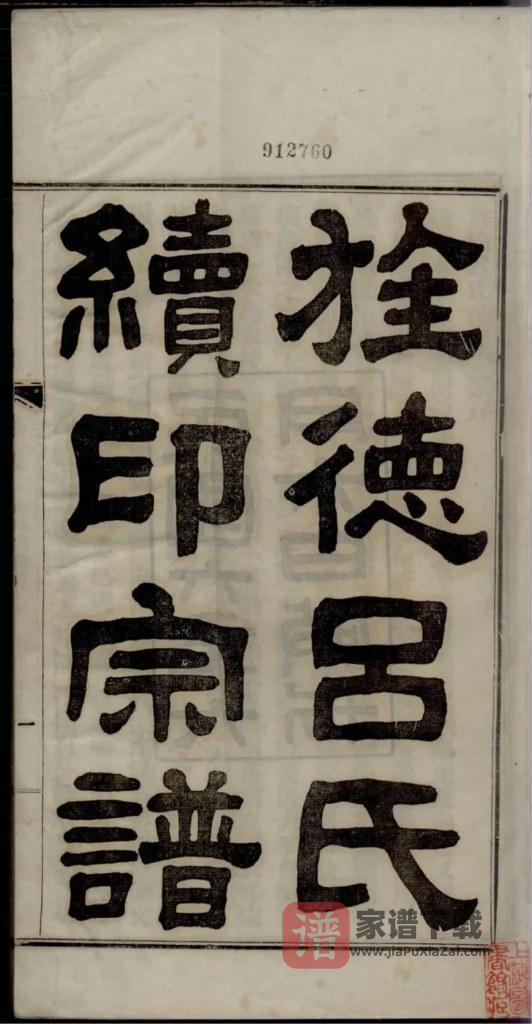 912760
旌徳呂氏
續印宗譜
一
谱
家谱下载
www.jiaPuxiazai.com